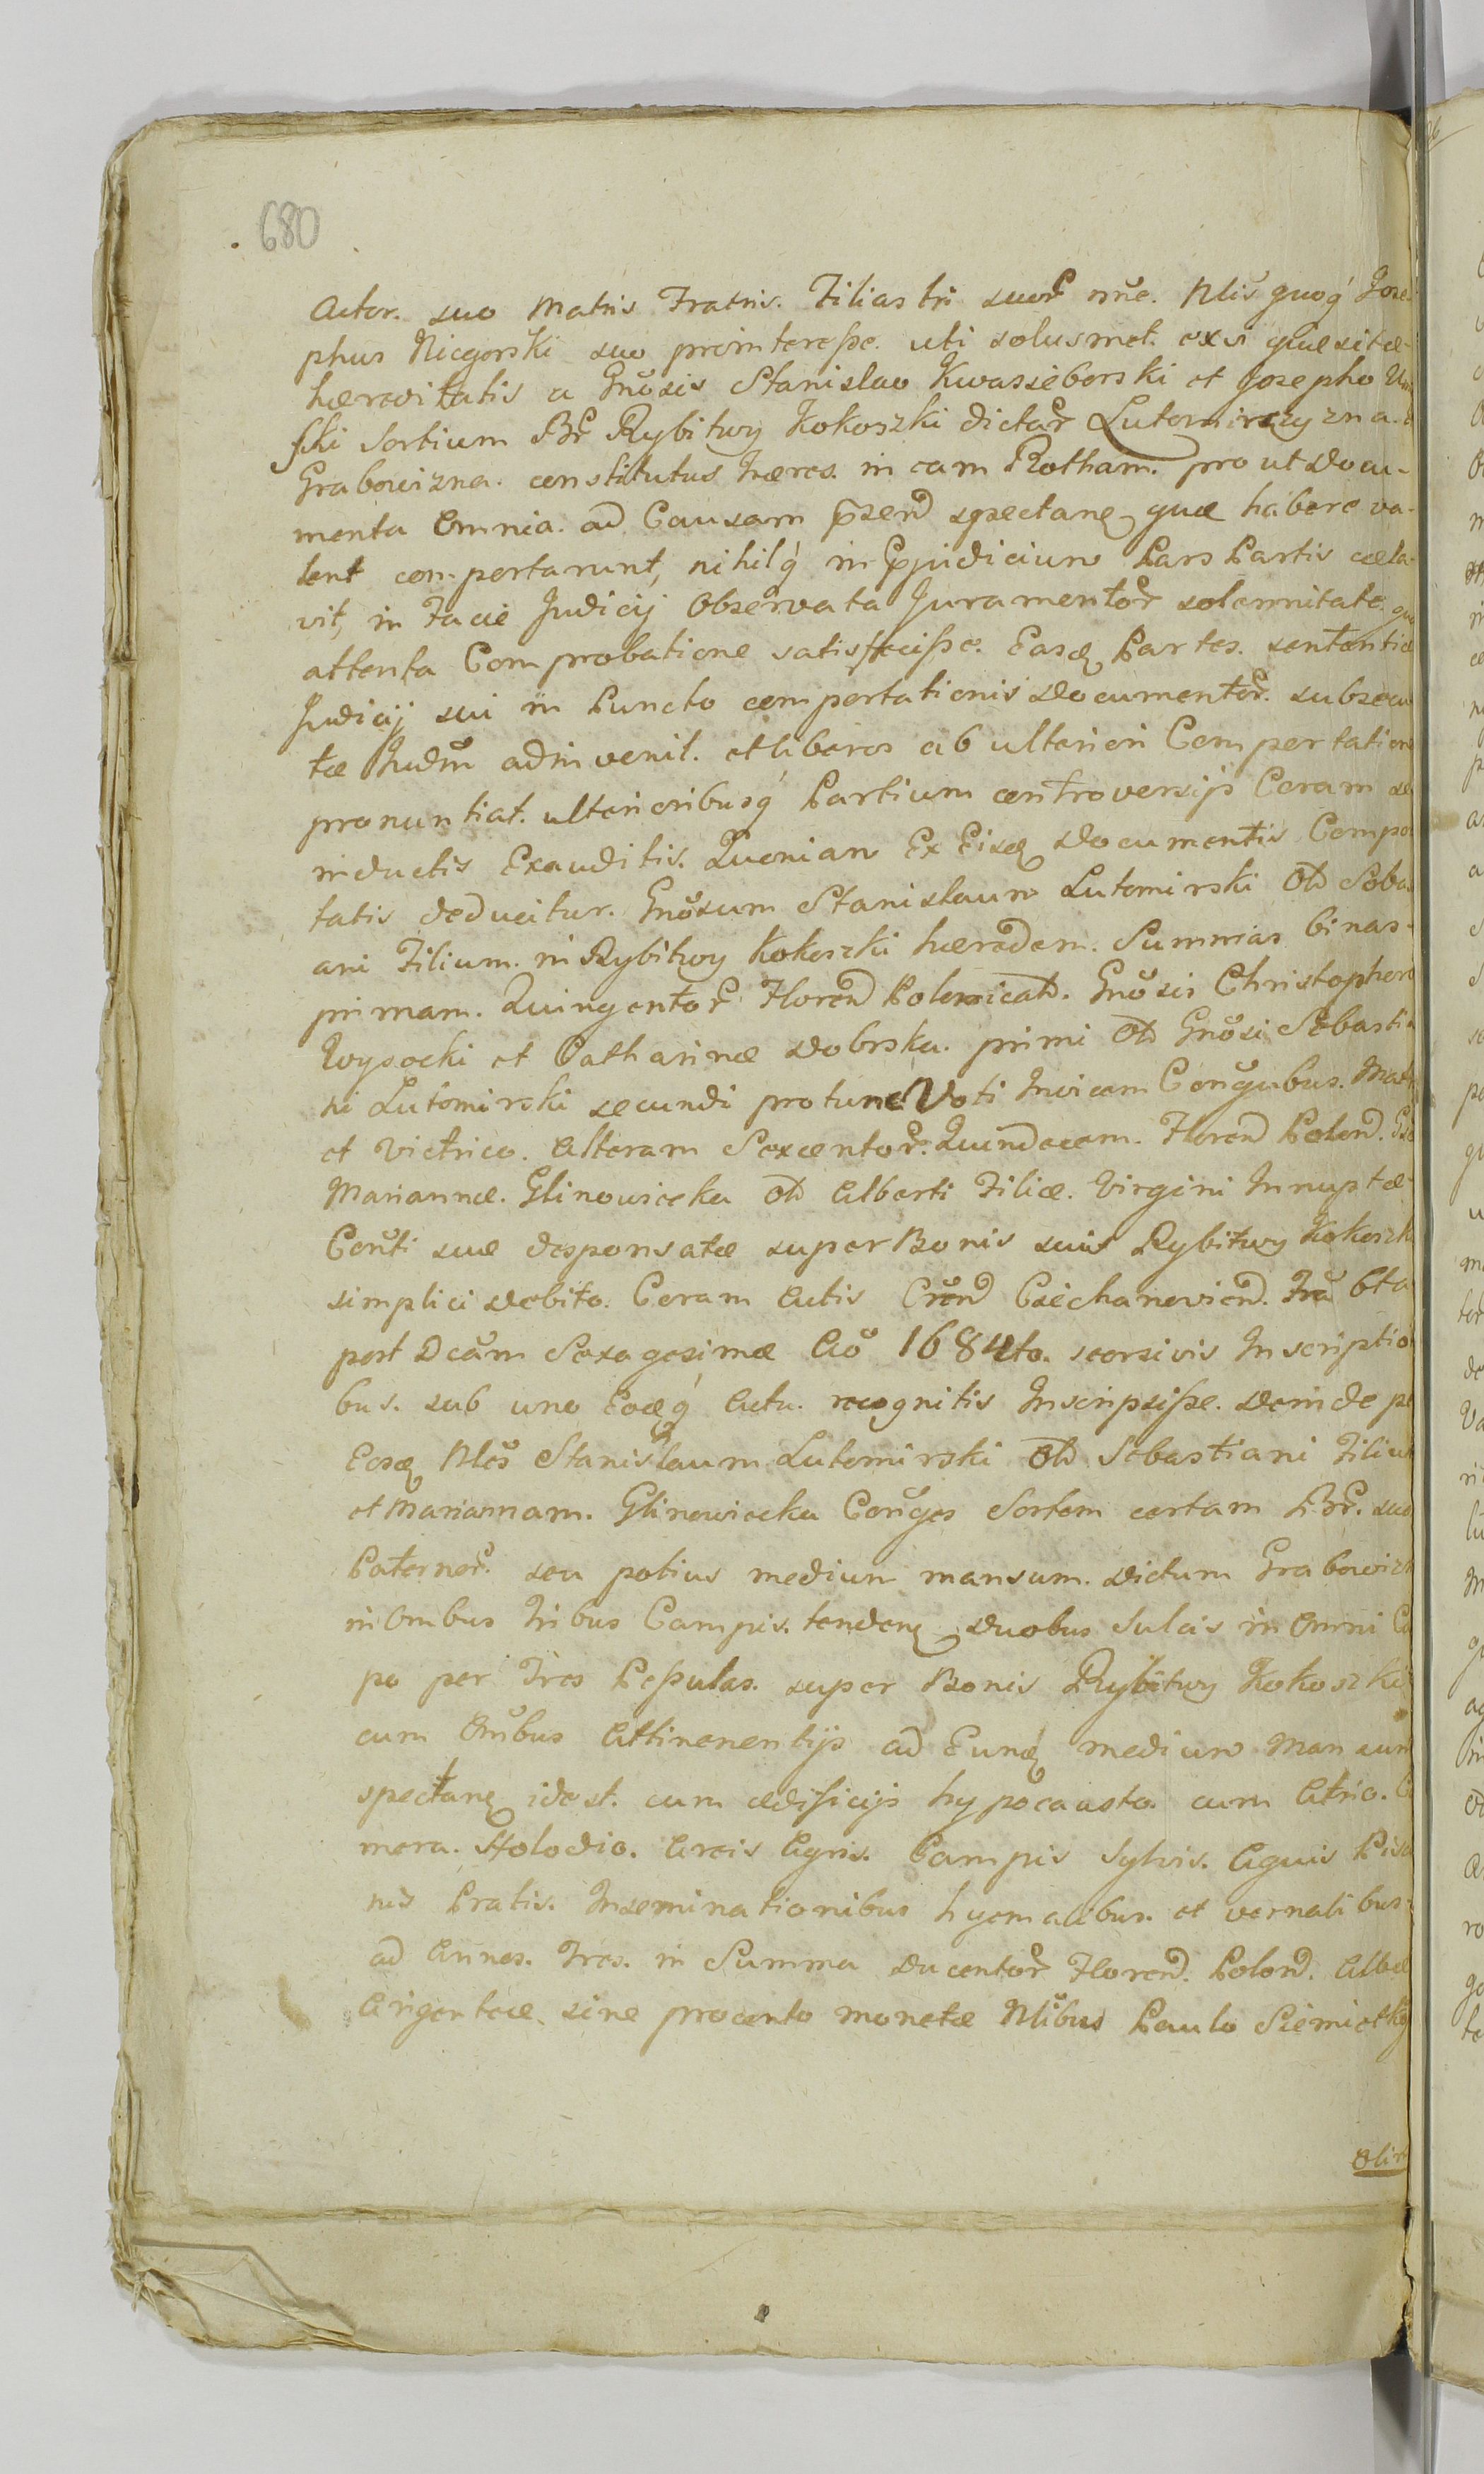 680
Actor. suo Matris Fratris. Filiastri suor nne. Nlis quoq Jose
phus Niegorski suo prointeresse. uti solusmet. ex vi quaesitae
haereditatis a Gnosis Stanislao Kwassieborski et Josepho
ski Sortium Br Rybitwy Kokoszki dictar Lutomirszyzna.
Grabowizna. constitutus haeres. in eam Rotham. pro ut docu-
menta Omnia. ad Causam psen spectan, quae habere va-
lent comportarunt, nihilq in Ppjudicium Pars Partis caela-
vit, in Facie Judicij Observata Juramentor solennitate.
attenta Comprobatione satisfecisse. Easq Partes. sententiae
Judicij sui in Puncto comportationis documentor. subsecu
tae Judm adinvenit. et liberos ab ulteriori Comportatione
pronuntiat. ulterioribusq Partium controversijs Coram se
inductis Exauditis. Quoniam Ex Eisd documentis Compor
tatis deducitur. Gnosum Stanislaum Lutomirski Ol Seba
ani Filium. in Rybitwy Kokoszki haeredem. Summas binas-
primam. Quingentor Floren Polonical. Gnosis Christophoro
Wysocki et Catharinae Dobrska. primi Ol Gnosi Sebastia
ni Lutomirski secundi protunc Voti Invicem Congubus. Mat
et Vietrico. Alteram Sexcentor. Quindecem. Floren Polon.
Mariannae. Glinowiecka Ol Alberti Filiae. Virgini Innuptae
Conti suae desponsatae super Bonis suis Rybitwy Kokoszk
simplici debito. Coram Actis Cren Ciechanovien. Fra 6ta
post Dcam Sexagesimae Ao 1684to. seorsivis Inscriptio
bus. sub uno Eodq Actu. recognitis Inscripsisse. deinde p
Eosd Nlos Stanislaum Lutomirski Ol Sebastiani Filium
et Mariannam. Glinowiecka Conges Sortem certam Br. suo
Paternor. seu potius medium mansum. dictum Grabowizn
in Ombus tribus Campis. tenden duobus Sulcis in Omni
po per Tres Pessulas. super Bonis Rybitwy Kokoszki
cum Ombus Attinenentijs ad Eund medium Mansum
spectan idest. cum aedificijs hypocausto. cum Atrio.
mera. Stolodio. Areis Agris. Campis Sylvis. Aquis Pisci
nis Pratis. Inseminationibus hyemalibus. et vernalibus
ad Annos. Tres. in Summa ducentor Floren. Polon. Albae
Argenteae. sine procento monetae Nlibus Paulo Siemiatko
Olim